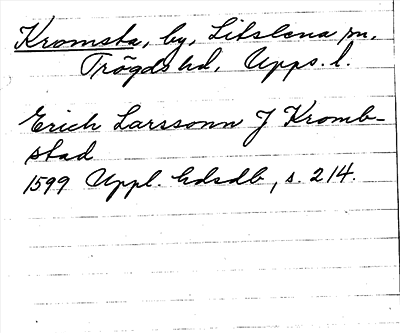 Kromsta, by, Litslena sn,
Trögds hd, Upps. l.
Erich Larssonn J Kromb-
stad
1599 Uppl. hdsdb, s. 214.